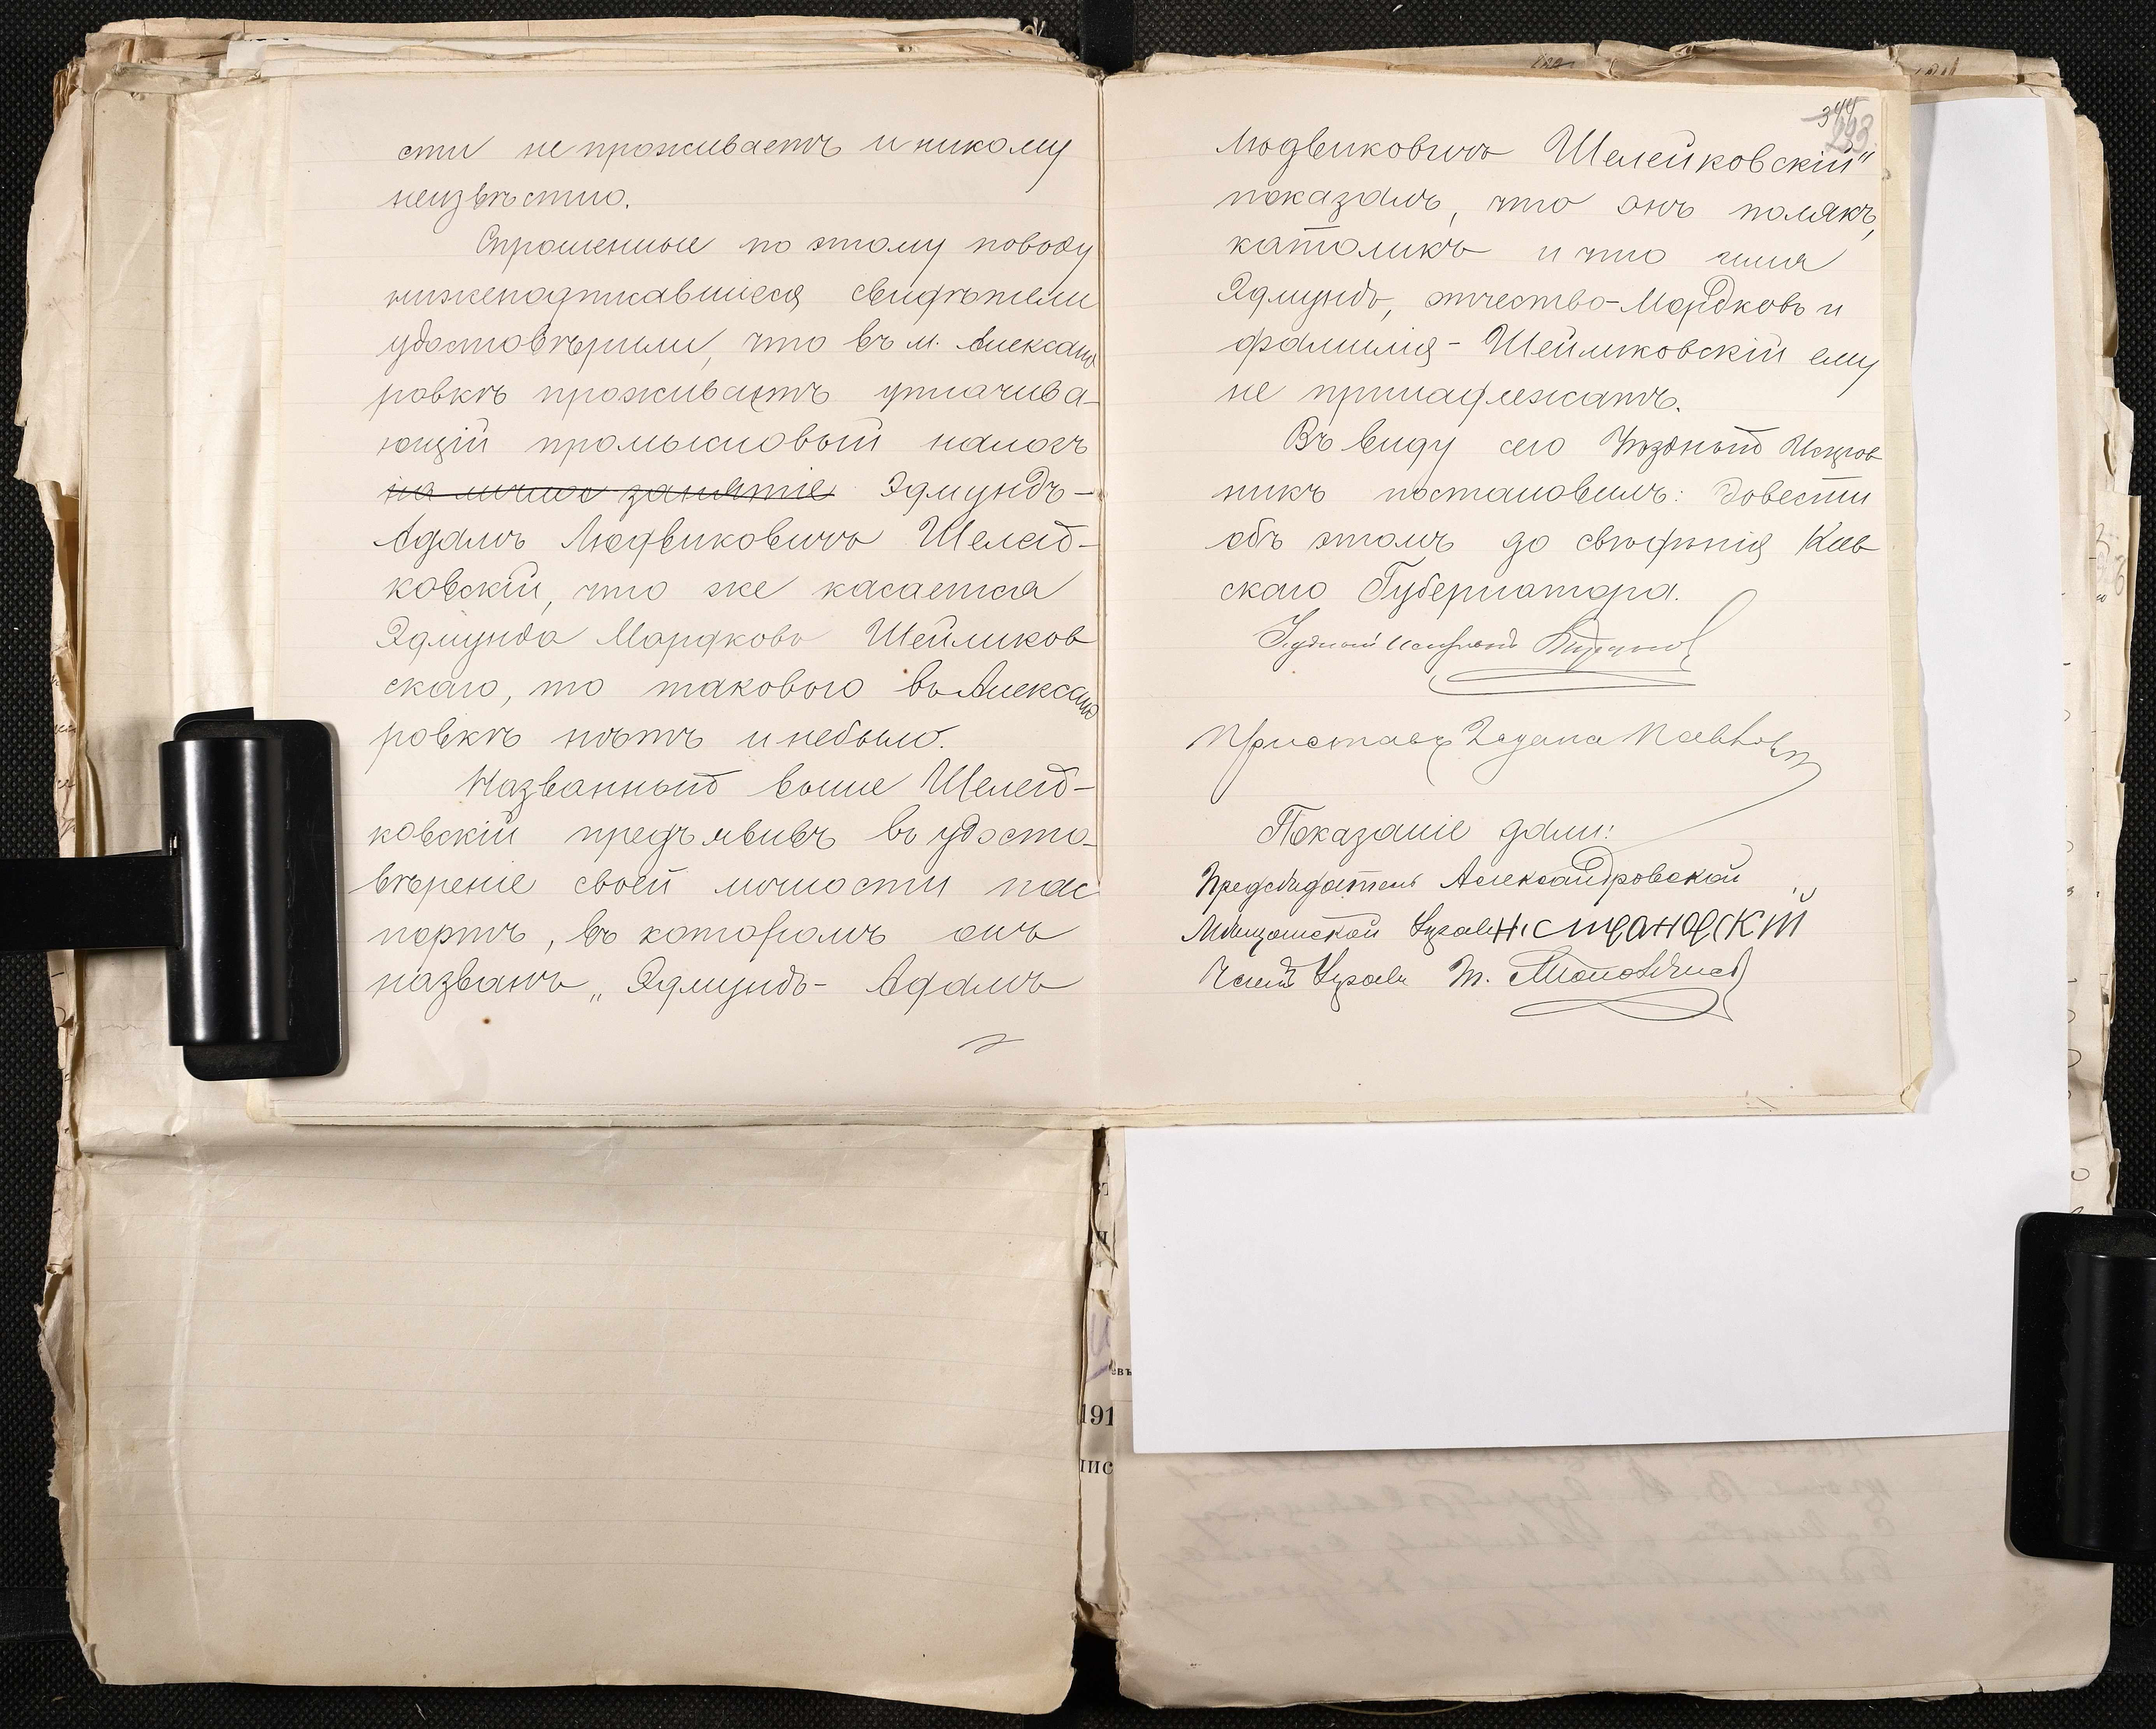 сти не проживаетъ и никому
неизвѣстно.
Спрошенные по этому поводу
нижеподписавшіеся свидѣтели
удостовѣрили, что въ м. Александ
ровкѣ проживаетъ уплачива-
ющій промысловый налогъ
на личное занятіе Эдмундъ-
Адамъ Людвиковичъ Шелей-
ковскій, что же касается
Эдмунда Мордкова Шейликов
скаго, то такового въ Александ
ровкѣ нѣтъ и небыло.
Названный выше Шелей-
ковскій предъявивъ въ удосто-
вѣреніе своей личности пас
портъ, въ которомъ онъ
названъ „Эдмундъ- Адамъ
344
293
Людвиковичъ Шелейковскій"
показалъ, что онъ полякъ,
католикъ и что имя
Эдмундъ, отчество-Мордковъ и
фамилія- Шейликовскій ему
не принадлежатъ.
Въ виду сего Уѣздный Исправ
никъ постановилъ: довести
объ этомъ до свѣдѣнія Кіев
скаго Губернатора.
Уѣздный Исправникъ
Приставъ 2 стана
Показаніе дали:
Предсѣдатель Александровской
Мѣщанской Управы
Членъ Управы
191